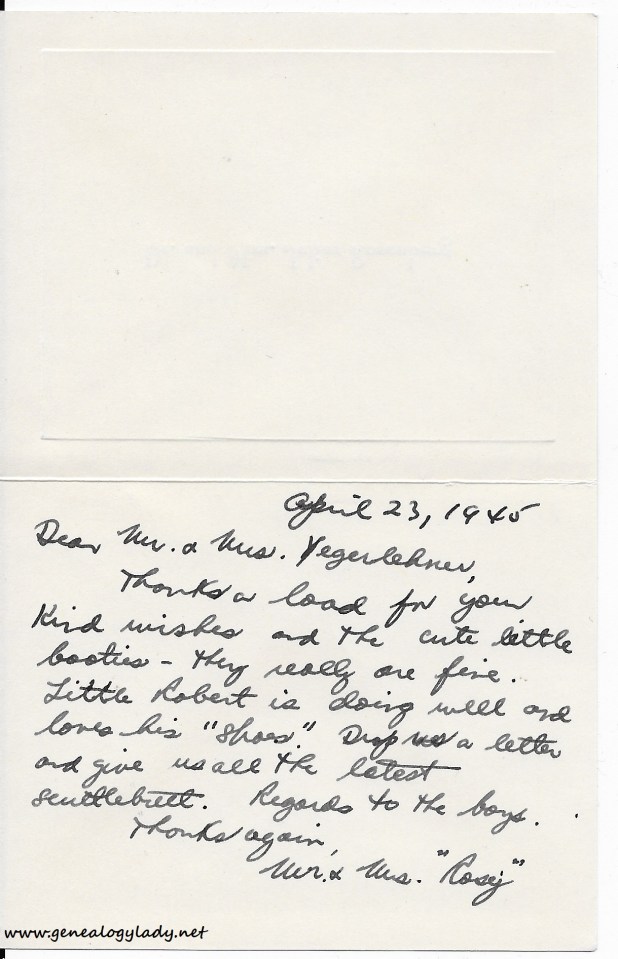 April 23, 1945
Dear Mr. & Mrs. Yegerlehner,
Thanks a load for your
kind wishes and the cute little
booties - they really are fine.
Little Robert is doing well and
loves his "shoes." Drop us a letter
and give us all the latest
scuttlebutt. Regards to the boys.
Thanks again,
Mr. & Mrs. "Rosy"
www.genealogylady.net